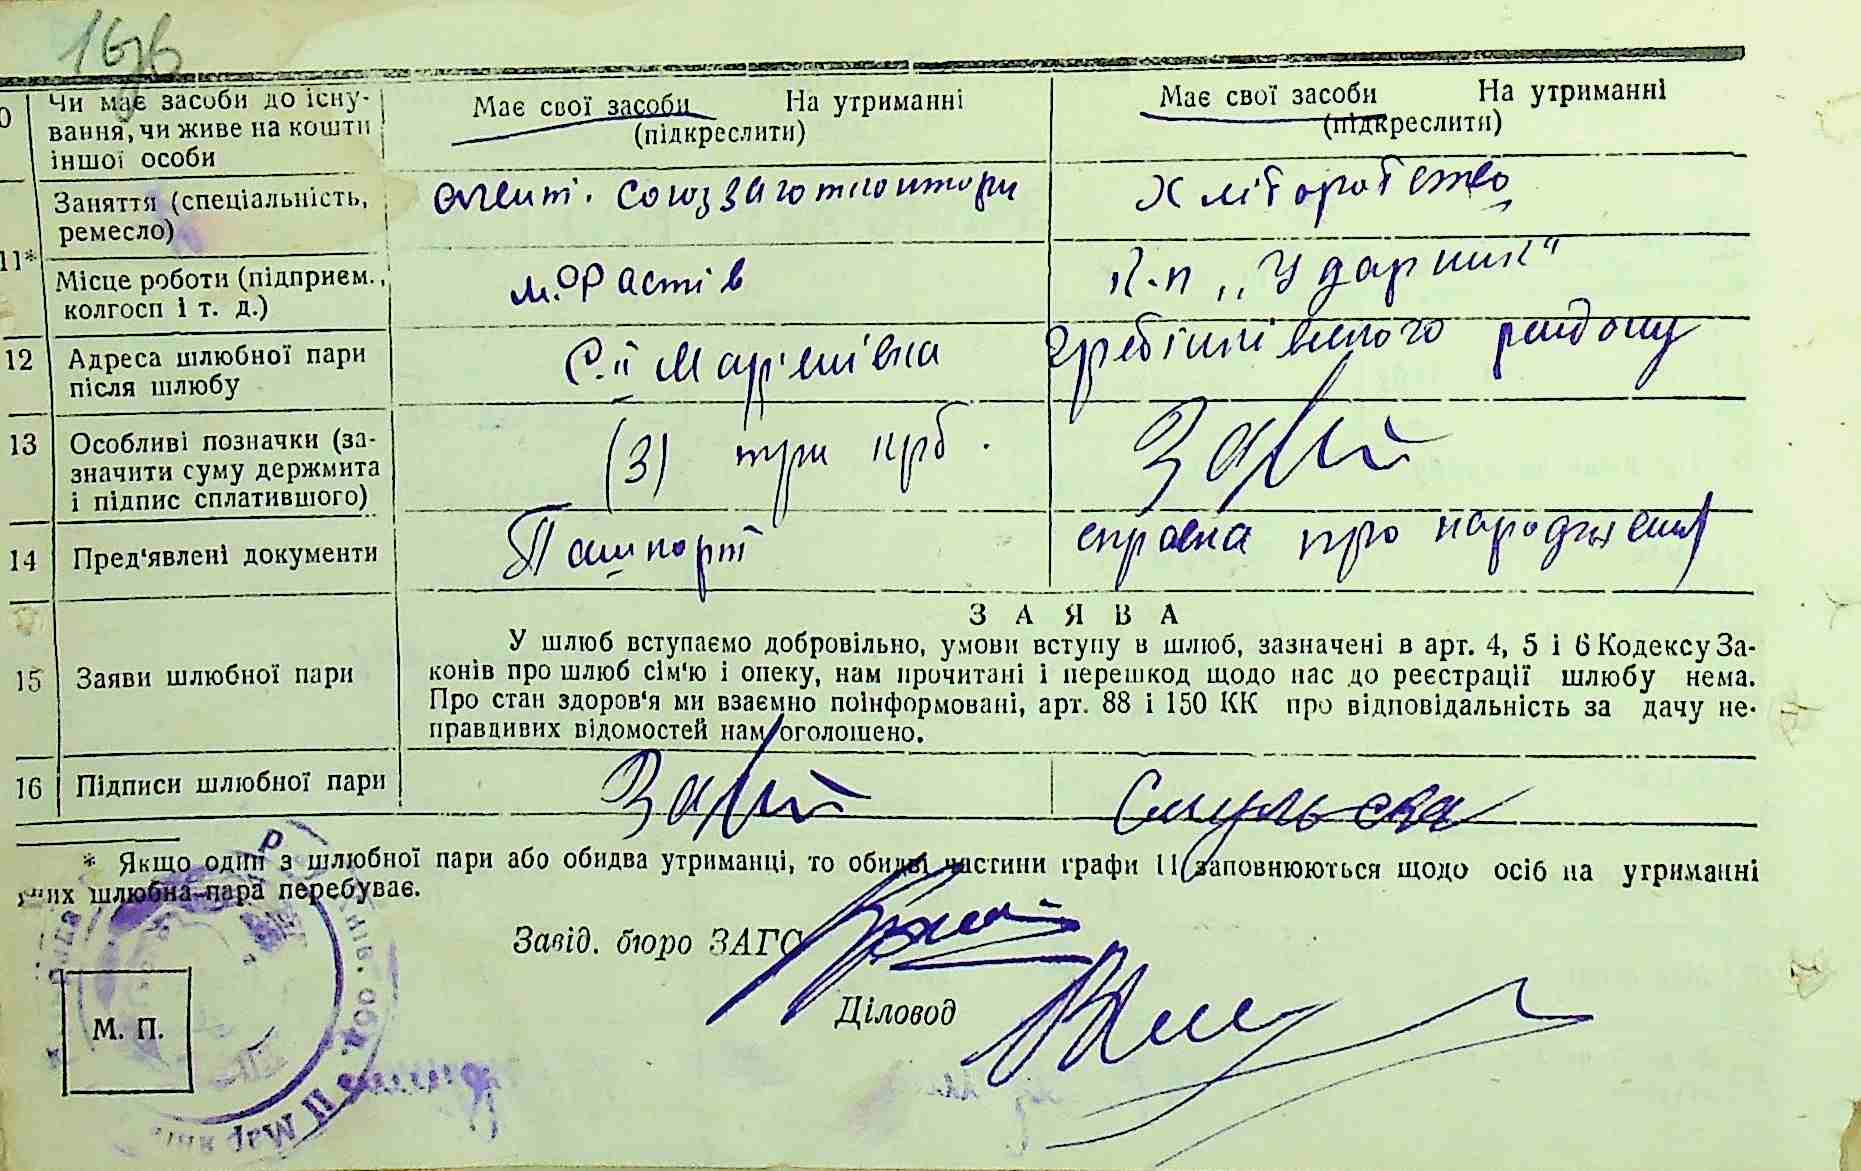 Чи має засоби до існу-
вання, чи живе на кошти
іншої особи
Має свої засоби На утриманні
(підкреслити)
Має свої засоби На утриманні
(підкреслити)
11*
Заняття (спеціальність,
ремесло)
агент. Союззаготконтори
Хліборобство
Місце роботи (підприєм.,
колгосп і т. д.)
м. Фастів
к-п „Ударник"
12 Адреса шлюбної пари
після шлюбу
С. ІІ Мар'янівка Гребінківського району
13 Особливі позначки (за-
значити суму держмита
і підпис сплатившого)
(3) три крб.
14 Пред'явлені документи
Пашпорт
справка про народження
15 Заяви шлюбної пари
ЗАЯВА
У шлюб вступаємо добровільно, умови вступу в шлюб, зазначені в арт. 4, 5 і 6 Кодексу За-
конів про шлюб сім'ю і опеку, нам прочитані і перешкод щодо нас до реєстрації шлюбу нема.
Про стан здоров'я ми взаємно поінформовані, арт. 88 і 150 КК про відповідальність за дачу не-
правдивих відомостей нам оголошено.
16 Підписи шлюбної пари
* Якщо один з шлюбної пари або обидва утриманці, то обидві частини графи 11 заповнюються щодо осіб на утриманні
яких шлюбна пара перебуває.
Завід. бюро ЗАГС
Діловод
М. П.